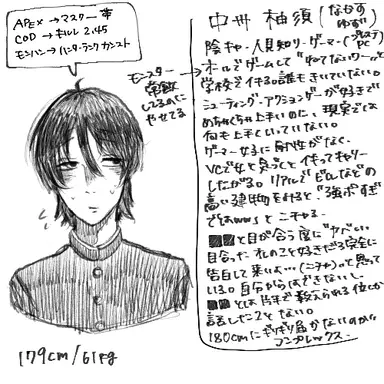 APEX→マスター帯
COD→キルレ 2.45
モンハン→ハンターランクカンスト
モンスター
常飲
してるのに
やせてる
中州 柚須(なかす
ゆず)
陰キャ・人見知り・ゲーマー(プレステ
PC)
学校でイキる。誰もきいていない。
シューティング・アクションゲーが好きで
めちゃくちゃ上手いのに、現実では
何も上手くいっていない。
ゲーマー女子に耐性がなく
VCで女と気づくとイキってキャリー
したがる。リアルでビルなどの
高い建物をみると、"強ポすぎ
ではwww とニチャる。
と目が合う度に"ヤバい
目合った オレのこと好きだろ完全に
告白して来いよ…(ニチャ)って思って
いる。自分からはできないし、
とは片手で数えられる位しか
話したことない。
180cmにギリギリ届かないのが
コンプレックス。
179cm/61kg